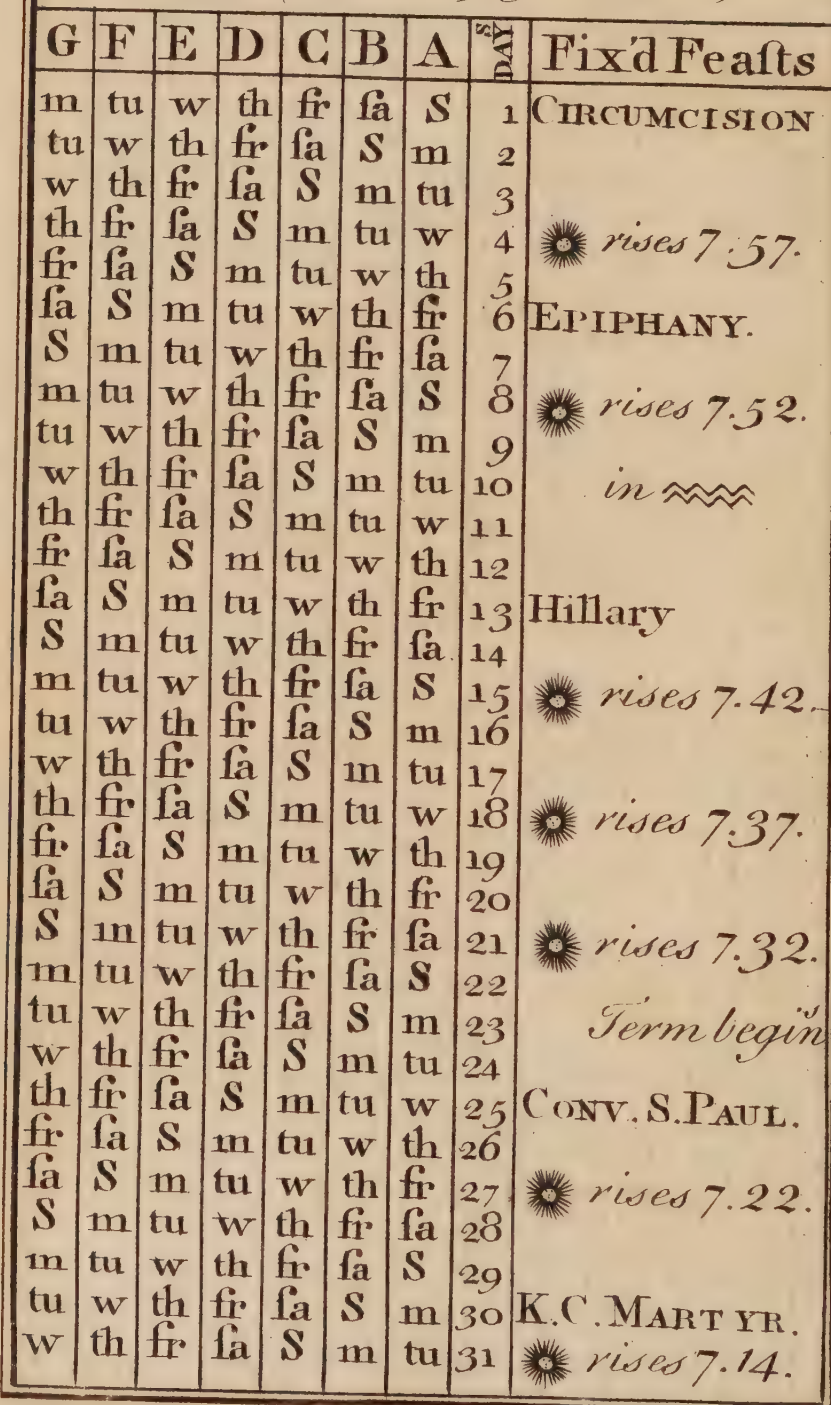 G F E D C B A S DAY Fix'd Feaſts
m tu w th fr ſa S 1 CIRCUMCISION
tu w th fr ſa S m 2
w th fr ſa S m tu 3
th fr ſa S m tu w 4 rises 7.57.
fr ſa S m tu w th 5
ſa S m tu w th fr 6 EPIPHANY.
S m tu w th fr ſa 7
m tu w th fr ſa S 8 rises 7.52.
tu w th fr ſa S m 9
w th fr ſa S m tu 10 in
th fr ſa S m tu w 11
fr ſa S m tu w th 12
ſa S m tu w th fr 13 Hillary
S m tu w th fr ſa 14
m tu w th fr ſa S 15 rises 7.42.
tu w th fr ſa S m 16
w th fr ſa S m tu 17
th fr ſa S m tu w 18 rises 7.37.
fr ſa S m tu w th 19
ſa S m tu w th fr 20
S m tu w th fr ſa 21 rises 7.32.
m tu w th fr ſa S 22
tu w th fr ſa S m 23 Term begins
w th fr ſa S m tu 24
th fr ſa S m tu w 25 CONV. S. PAUL.
fr ſa S m tu w th 26
ſa S m tu w th fr 27 rises 7.22.
S m tu w th fr ſa 28
m tu w th fr ſa S 29
tu w th fr ſa S m 30 K.C. MARTYR.
w th fr ſa S m tu 31 rises 7.14.